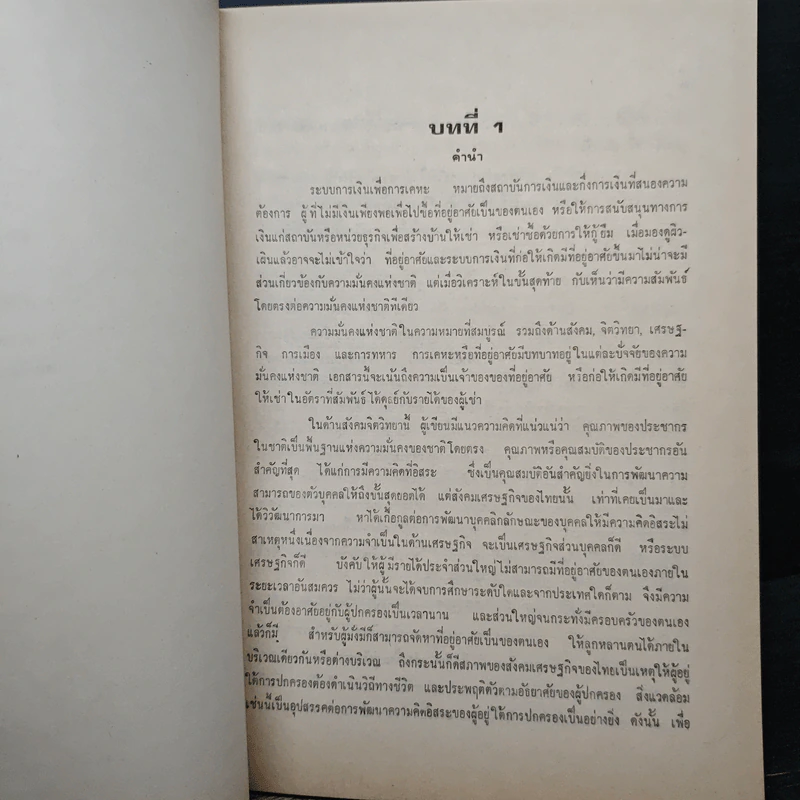 บทที่ 1
คำนำ
ระบบการเงินเพื่อการเคหะ หมายถึงสถาบันการเงินและกึ่งการเงินที่สนองความ
ต้องการ ผู้ที่ไม่มีเงินเพียงพอเพื่อไปซื้อที่อยู่อาศัยเป็นของตนเอง หรือให้การสนับสนุนทางการ
เงินแก่สถาบันหรือหน่วยธุรกิจเพื่อสร้างบ้านให้เช่า หรือเช่าซื้อด้วยการให้กู้ยืม เมื่อมองดูผิว-
เผินแล้วอาจจะไม่เข้าใจว่า ที่อยู่อาศัยและระบบการเงินที่ก่อให้เกิดมีที่อยู่อาศัยขึ้นมาไม่น่าจะมี
ส่วนเกี่ยวข้องกับความมั่นคงแห่งชาติ แต่เมื่อวิเคราะห์ในขั้นสุดท้าย กับเห็นว่ามีความสัมพันธ์
โดยตรงต่อความมั่นคงแห่งชาติทีเดียว
ความมั่นคงแห่งชาติในความหมายที่สมบูรณ์ รวมถึงด้านสังคม, จิตวิทยา, เศรษฐ-
กิจ การเมือง และการทหาร การเคหะหรือที่อยู่อาศัยมีบทบาทอยู่ในแต่ละปัจจัยของความ
มั่นคงแห่งชาติ เอกสารนี้จะเน้นถึงความเป็นเจ้าของของที่อยู่อาศัย หรือก่อให้เกิดมีที่อยู่อาศัย
ให้เช่าในอัตราที่สัมพันธ์ได้ดุลย์กับรายได้ของผู้เช่า
ในด้านสังคมจิตวิทยานี้ ผู้เขียนมีแนวความคิดที่แน่วแน่ว่า คุณภาพของประชากร
ในชาติเป็นพื้นฐานแห่งความมั่นคงของชาติโดยตรง คุณภาพหรือคุณสมบัติของประชากรอัน
สำคัญที่สุด ได้แก่การมีความคิดที่อิสระ ซึ่งเป็นคุณสมบัติอันสำคัญยิ่งในการพัฒนาความ
สามารถของตัวบุคคลให้ถึงขั้นสุดยอดได้ แต่สังคมเศรษฐกิจของไทยนั้น เท่าที่เคยเป็นมาและ
ได้วิวัฒนาการมา หาได้เกื้อกูลต่อการพัฒนาบุคคลิกลักษณะของบุคคลให้มีความคิดอิสระไม่
สาเหตุหนึ่งเนื่องจากความจำเป็นในด้านเศรษฐกิจ จะเป็นเศรษฐกิจส่วนบุคคลก็ดี หรือระบบ
เศรษฐกิจก็ดี บังคับให้ผู้มีรายได้ประจำส่วนใหญ่ไม่สามารถมีที่อยู่อาศัยของตนเองภายใน
ระยะเวลาอันสมควร ไม่ว่าผู้นั้นจะได้จบการศึกษาระดับใดและจากประเทศใดก็ตาม จึงมีความ
จำเป็นต้องอาศัยอยู่กับผู้ปกครองเป็นเวลานาน และส่วนใหญ่จนกระทั่งมีครอบครัวของตนเอง
แล้วก็มี สำหรับผู้มั่งมีก็สามารถจัดหาที่อยู่อาศัยเป็นของตนเอง ให้ลูกหลานตนได้ภายใน
บริเวณเดียวกันหรือต่างบริเวณ ถึงกระนั้นก็ดีสภาพของสังคมเศรษฐกิจของไทยเป็นเหตุให้ผู้อยู่
ใต้การปกครองต้องดำเนินวิถีทางชีวิต และประพฤติตัวตามอัธยาศัยของผู้ปกครอง สิ่งแวดล้อม
เช่นนี้เป็นอุปสรรคต่อการพัฒนาความคิดอิสระของผู้อยู่ใต้การปกครองเป็นอย่างยิ่ง ดังนั้น เพื่อ